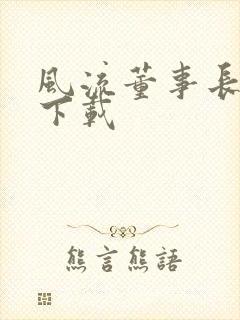 風流董事長
下載
熊言熊語